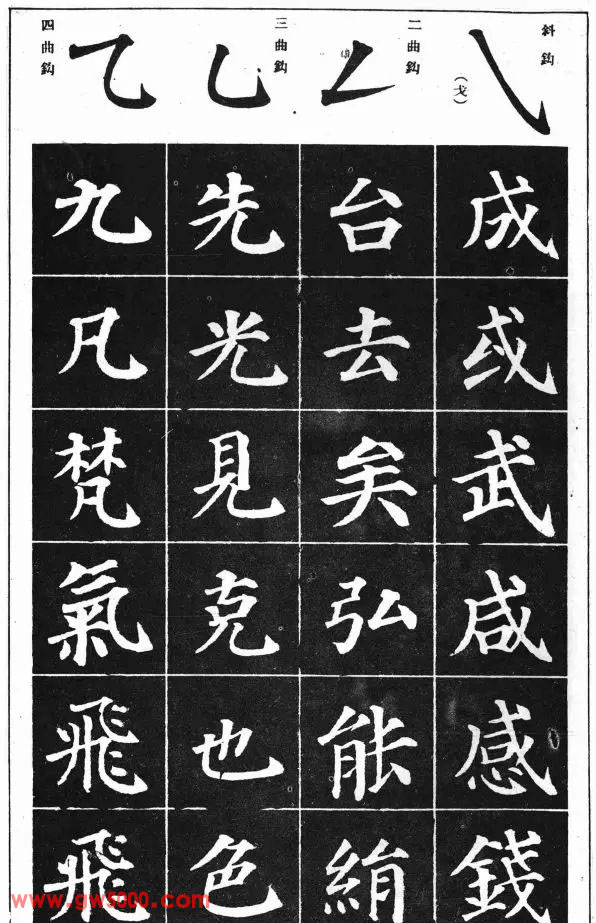 斜鈎
（戈）
成
或
武
咸
感
錢
二曲鈎
台
去
矣
弘
能
絹
三曲鈎
先
光
見
克
也
色
四曲鈎
九
凡
梵
氣
飛
飛
www.gw5000.com